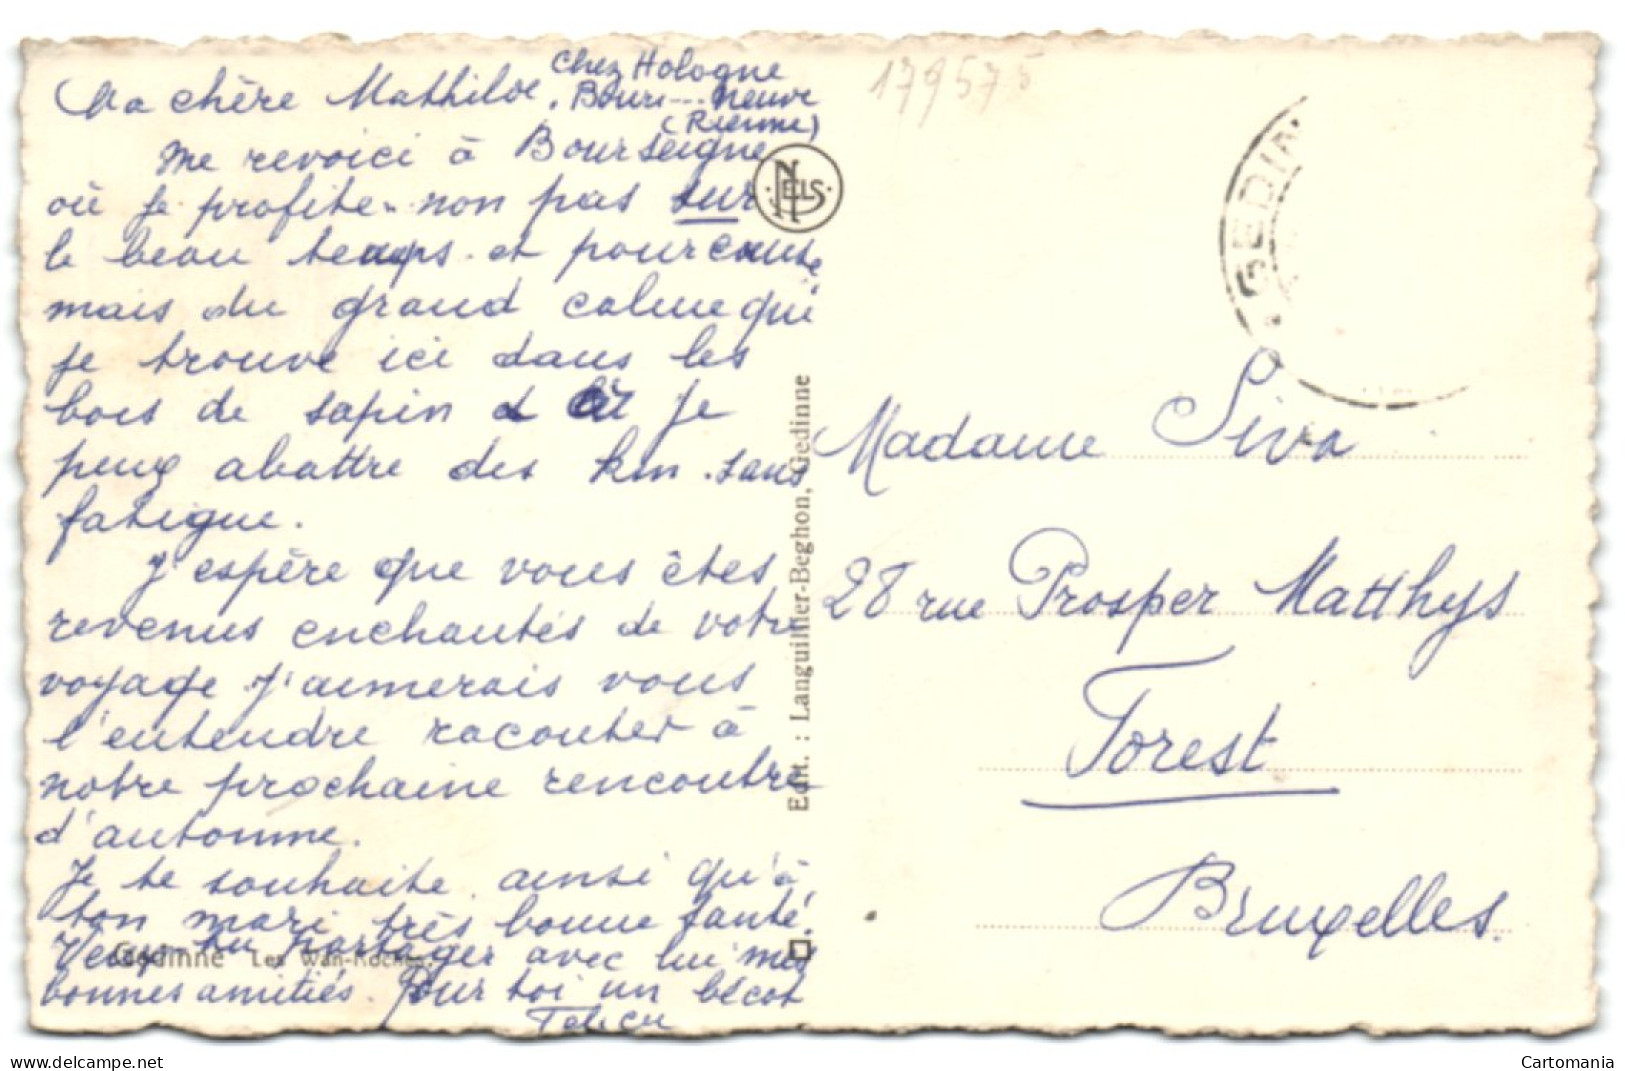 Chez Hologne
Ma chère Mathilde, Bours--- neuve
(Rienne)
Me revoici à Bourseigne
où je profite - non pas sur
le beau temps - et pour cause,
mais du grand calme qui
je trouve ici dans les
bois de sapin et où je
peux abattre des km. sans
fatigue.
J'espère que vous êtes
revenus enchantés de votre
voyage. J'aimerais vous
l'entendre raconter à
notre prochaine rencontre
d'automne.
Je te souhaite, ainsi qu'à
ton mari, très bonne santé.
Veux-tu partager avec lui mes
bonnes amitiés. Pour toi un bécot
Gedinne Les Wan-Roches.
179575
NELS
GEDIN
Edit. : Languillier-Beghon, Gedinne
Madame Siva
28 rue Prosper Matthys
Forest
Bruxelles.
delcampe.net
Cartomania